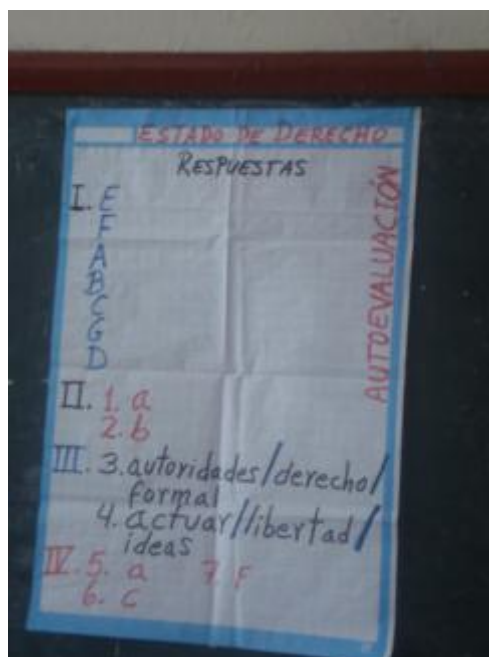 ESTADO DE DERECHO
RESPUESTAS
AUTOEVALUACIÓN
I. E
F
A
B
C
G
D
II. 1. a
2. b
III. 3. autoridades/derecho/
formal
4. actuar/libertad/
ideas
IV. 5. a 7. F
6. c